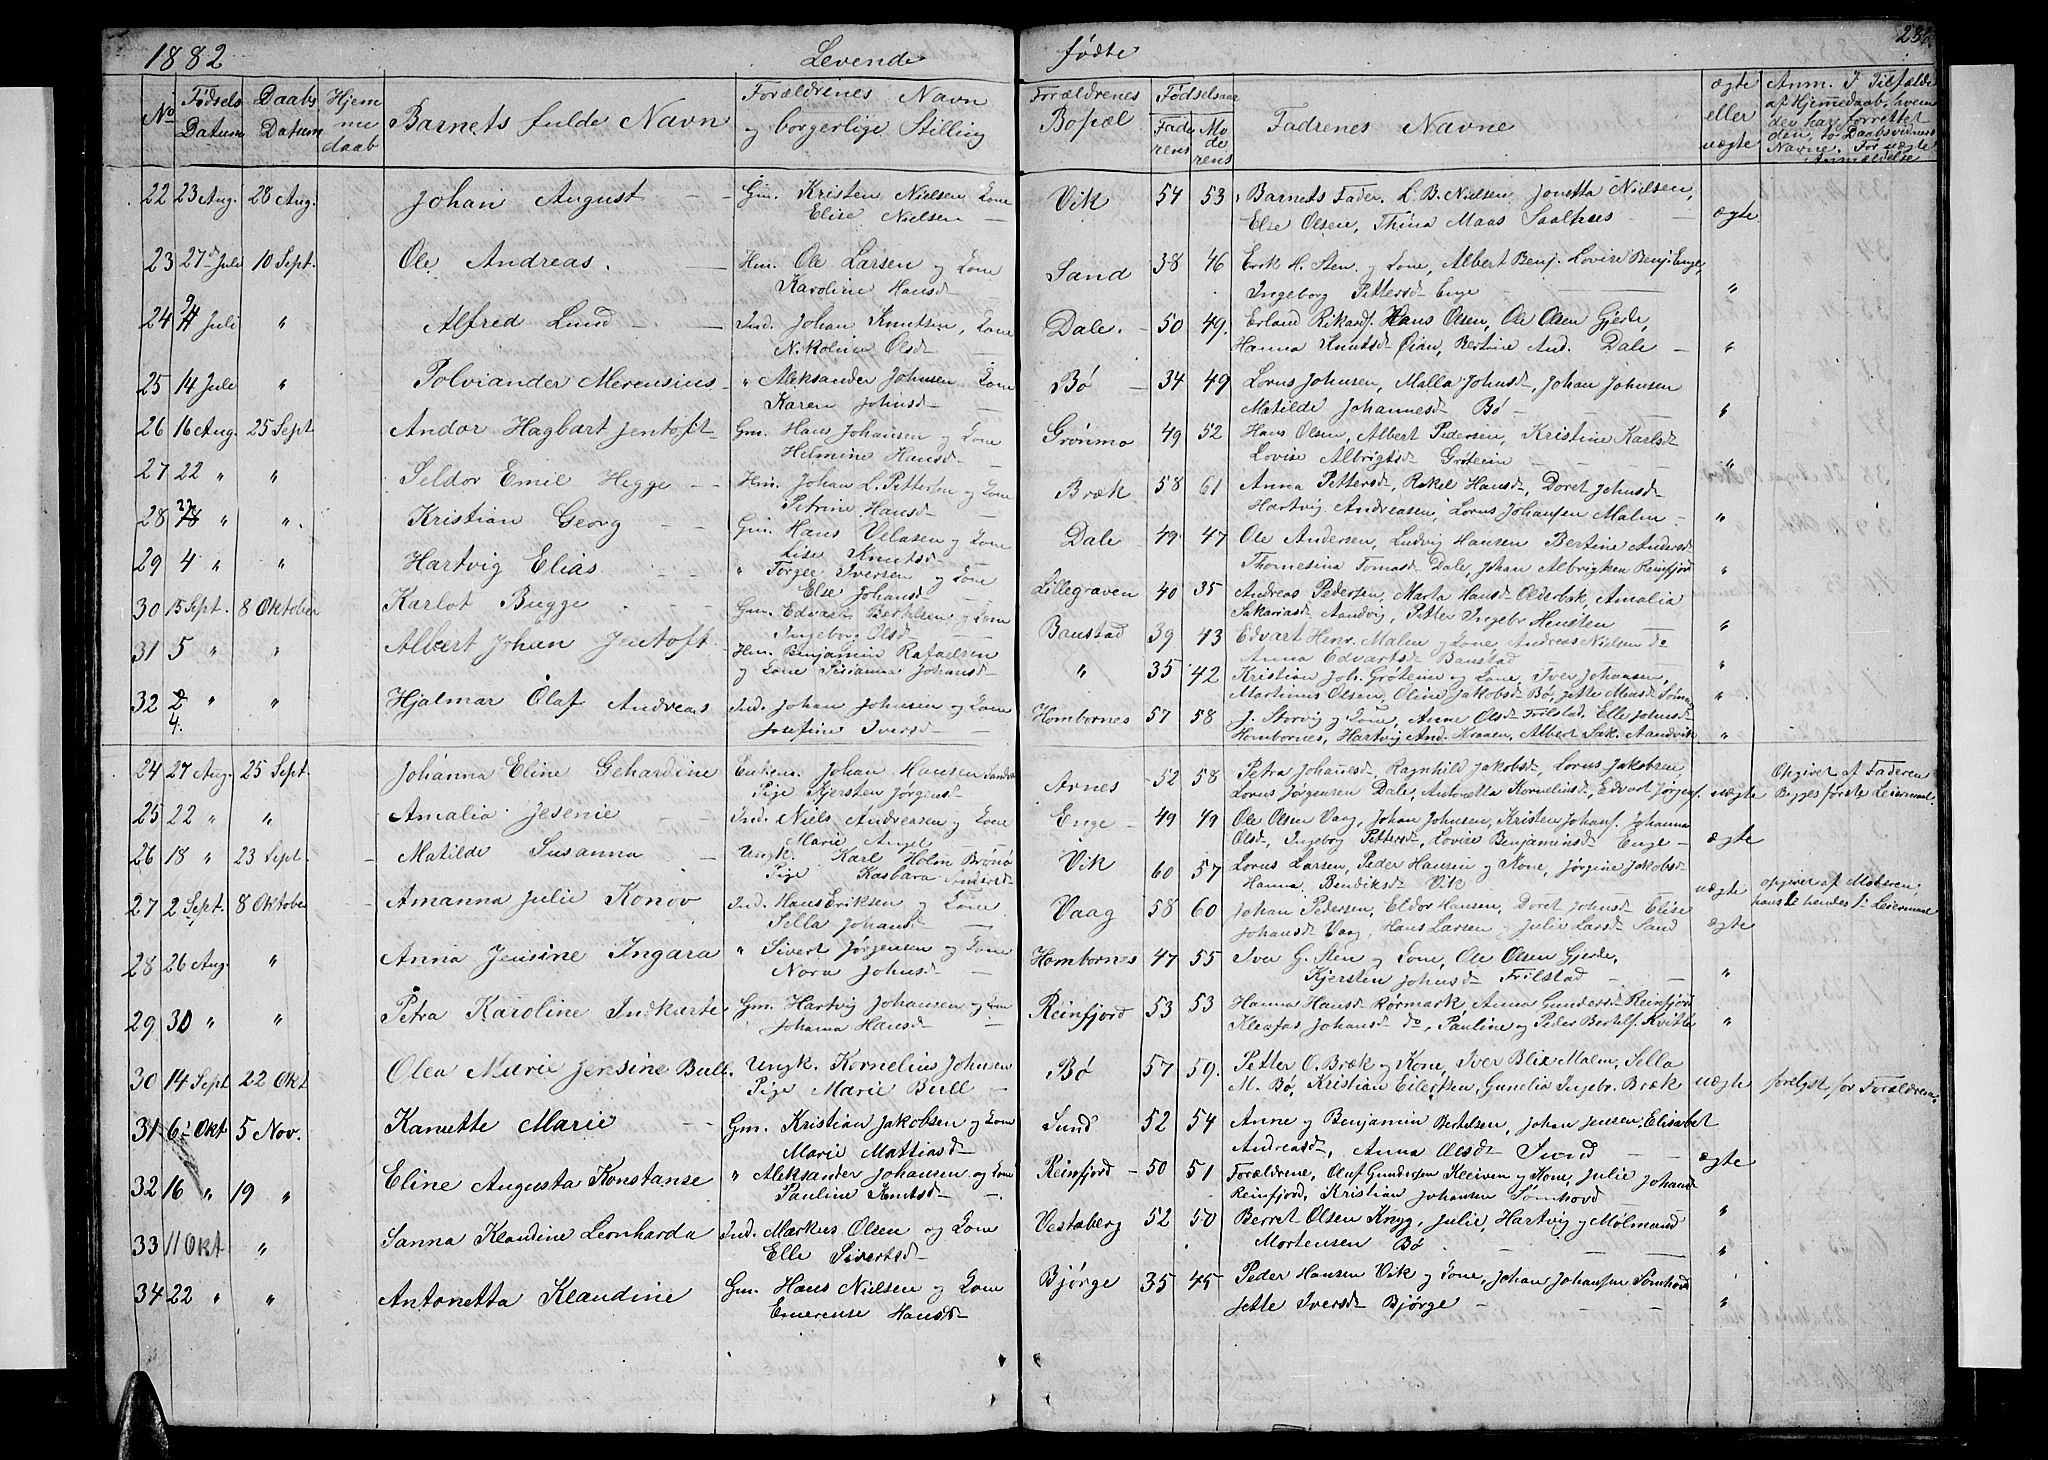 1882 Levende fødte 236
No Fødsels Datum Daabs Datum Hjemme daab Barnets fulde Navn Forældrenes Navn og borgerlige Stilling Forældrenes Bopæl Fødselsaar Faderens Moderens Fadrenes Navne ægte eller uægte Anm. I Tilfælde af Hjemmedaab, hvem der har forrettet den, to Daabsvidners Navne. For uægte Anmældelse
22 23 Aug. 28 Aug. Johan August Gm. Kristen Nielsen Kone Vik 54 53 Barnets Fader. L. B. Nielsen Jonetta Nielsen,
Elise Nielsen Else Olsen, Thina Maas Saalhus ægte
23 27 Juli 10 Sept. Ole Andreas. Hm. Ole Larsen og Kone Sand 38 46 Erik H. Sten. og Kone, Albert Benj. Lovise Benj. Enge,
Karoline Hansd Ingeborg Pettersd Enge "
24 Juli " Alfred Lund Ind. Johan Knutsen, Kone Dale. 50 49. Erland Rikardf. Hans Olsen, Ole Olsen Gjerde,
Nikoline Olsd Hanna Knutsd Øian, Bertine And. Dale "
25 14 Juli " Polviander Merensius " Aleksander Johnsen Kone Bø 34 49 Lorns Johnsen, Malla Johnsd, Johan Johnsen
Karen Johnsd Matilde Johannesd Bø "
26 16 Aug. 25 Sept. Andor Hagbart Jentoft Gm. Hans Johansen og Kone Grønmo 49 52 Hans Olsen, Albert Pedersen, Kristine Karlsd
Helmine Hansd Lovise Albrigtsd Grøteim "
27 22 " " Seldor Emil Hegge Hm. Johan L. Pettersen og Kone Bræk 58 61 Anna Pettersd, Rakel Hansd, Doret Johnsd
Petrine Hansd Hartvig Andreasen, Lorns Johansen Malm "
28 " " Kristian Georg Gm. Hans Velasen og Kone Dale 49 47 Ole Andersen, Ludvig Hansen Bertine Andersd
Lise Knutsd Thomesina Tomasd Dale, Johan Albrigtsen Reinfjord "
29 4 " " Hartvig Elias " Torger Iversen og Kone Lillegraven 40 35 Andreas Pedersen, Marta Hansd Olderbak, Amalia
Else Johansd Sakariasd Aandvig, Petter Ingebr Hensten "
30 15 Sept. 8 Oktober Karlot Bugge Gm. Edvart Bertelsen og Kone Banstad 39 43 Edvart Henr. Malm og Kone, Andreas Nielsen do
Ingeborg Olsd Anna Edvartsd Banstad "
31 5 " " Albert Johan Jentoft Hm. Benjamin Rafaelsen " 35 42 Kristian Joh. Grøteim og Kone, Iver Johansen,
og Kone Sirianna Johansd Martinus Olsen, Oline Jakobsd Bø, Jette Monsd "
32 2 " " Hjalmar Olaf Andreas Ind. Johan Johnsen og Kone Hombornes 57 58 J. Storvig og Kone, Anne Olsd Trilstad, Elle Johnsd
4. Josefine Iversd Hombornes, Hartvig And. Kraaen, Albert Sak. Aandvik "
24 27 Aug. 25 Sept. Johanna Eline Gehardine Enkem. Johan Hansen Arnes 52 58 Petra Johanesd, Ragnhild Jakobsd, Lorns Jakobsen, Opgivet af Faderen
Pige Kjersten Jørgensd Lorns Jørgensen Dale, Antonetta Kornelinsd, Edvart Jørgensf. uægte Begges første Leiermaal.
25 22 " " Amalia Jesenie Ind. Niels Andreasen og Kone Enge 49 49 Ole Olsen Vaag, Johan Johnsen, Kristen Johansf. Johanna
Marie Angel Olsd, Ingeborg Pettersd, Lovise Benjaminsd Enge ægte
26 18 " 23 Sept. Matilde Susanna Ungk. Karl Holm Brønø Vik 60 57 Lorns Larsen, Peder Hansen og Kone, Jørgine Jakobsd
Pige Kasbara Andersd Hanna Bendiksd Vik uægte opgivet af Moderen,
27 2 Sept. 8 Oktober Amanna Julie Konov Ind. Hans Eriksen og Kone Vaag 58 60 Johan Pedersen, Eldor Hansen, Doret Johnsd Elise hans 2 hendes 1ste Leiermaal
Sella Johansd Johansd Vaag, Hans Larsen og Julie Larsd Sand ægte
28 26 Aug. " Anna Jensine Ingara " Sivert Jørgensen og Kone Hombornes 47 55 Iver G. Sten og Kone, Ole Olsen Gjerde,
Nora Johnsd Kjersten Johnsd Trilstad "
29 30 " " Petra Karoline Indkarte Gm. Hartvig Johansen og Kone Reinfjord 53 53 Hanna Hansd Rørmark, Anna Gundersd Reinfjord
Johanna Hansd Kleofas Johansd do, Pauline og Peder Bertelsf. Kvitte "
30 14 Sept 22 Okt Olea Marie Jensine Bull. Ungk. Kornelius Johnsen Bø 57 59. Petter O. Bræk og Kone, Iver Blix Malm, Sella
Pige Marie Bull M. Bø, Kristian Eilertsen, Gunelia Ingebr. Bræk uægte forelyst for Forældrene.
31 6 Okt 5 Nov. Kanutte Marie Gm. Kristian Jakobsen og Kone Sund 52 54 Anne og Benjamin Bertelsen, Johan Jensen, Elisabet
Marie Mattiasd Andreasd, Anna Olsd Sund ægte
32 16 " 19 " Eline Augusta Konstanse " Aleksander Johansen og Kone Reinfjord 50 51 Forældrene, Oluf Gundersen Kleiven og Kone, Julie Johansd
Pauline Knutsd Reinfjord, Kristian Johansen Sømhovd "
33 11 Okt " Sanna Klaudine Leonharda Ind. Markus Olsen og Kone Vestaberg 52 50 Berret Olsen Knyg, Julie, Hartvig og Molmand
Elle Sivertsd Mortensen Bø "
34 22 " " Antonetta Klaudine Gm. Hans Nielsen og Kone Bjørge 35 45 Peder Hansen Vik og Kone, Johan Johansen Sømhovd
Emerense Hansd Jette Iversd Bjørge "